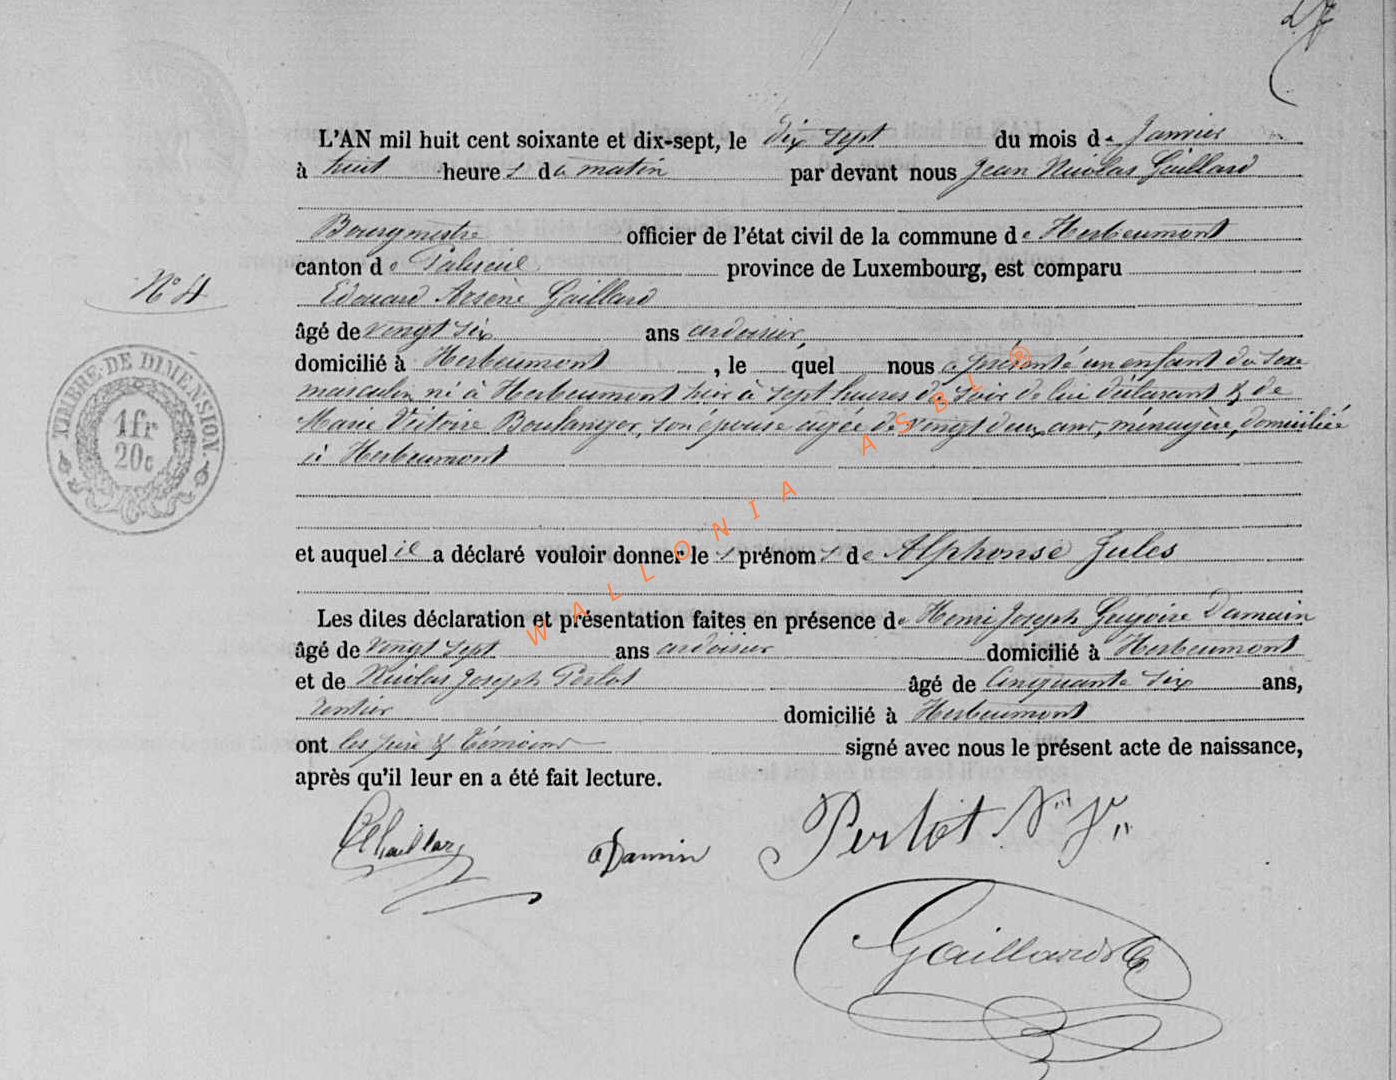 L'AN mil huit cent soixante et dix-sept, le dix sept du mois de Janvier
à huit heures du matin par devant nous Jean Nicolas Gaillard
Bourgmestre officier de l'état civil de la commune de Herbeumont
canton de Paliseul province de Luxembourg, est comparu
N° 4
Edouard Arsène Gaillard
âgé de vingt six ans ardoisier
domicilié à Herbeumont, le quel nous a présenté un enfant du sexe
masculin né à Herbeumont hier à sept heures du soir de lui déclarant & de
Marie Victoire Boulanger, son épouse agée de vingt deux ans, ménagère, domiciliée
à Herbeumont
TIMBRE DE DIMENSION.
1fr
20c
et auquel il a déclaré vouloir donner les prénoms de Alphonse Jules
Les dites déclaration et présentation faites en présence de Henri Joseph Damuin
âgé de vingt sept ans ardoisier domicilié à Herbeumont
et de Nicolas Joseph Perlot âgé de Cinquante six ans,
rentier domicilié à Herbeumont
ont les père & témoins signé avec nous le présent acte de naissance,
après qu'il leur en a été fait lecture.
EGaillard Damin Perlot N. J.
Gaillard
WALLONIA ASBL ®